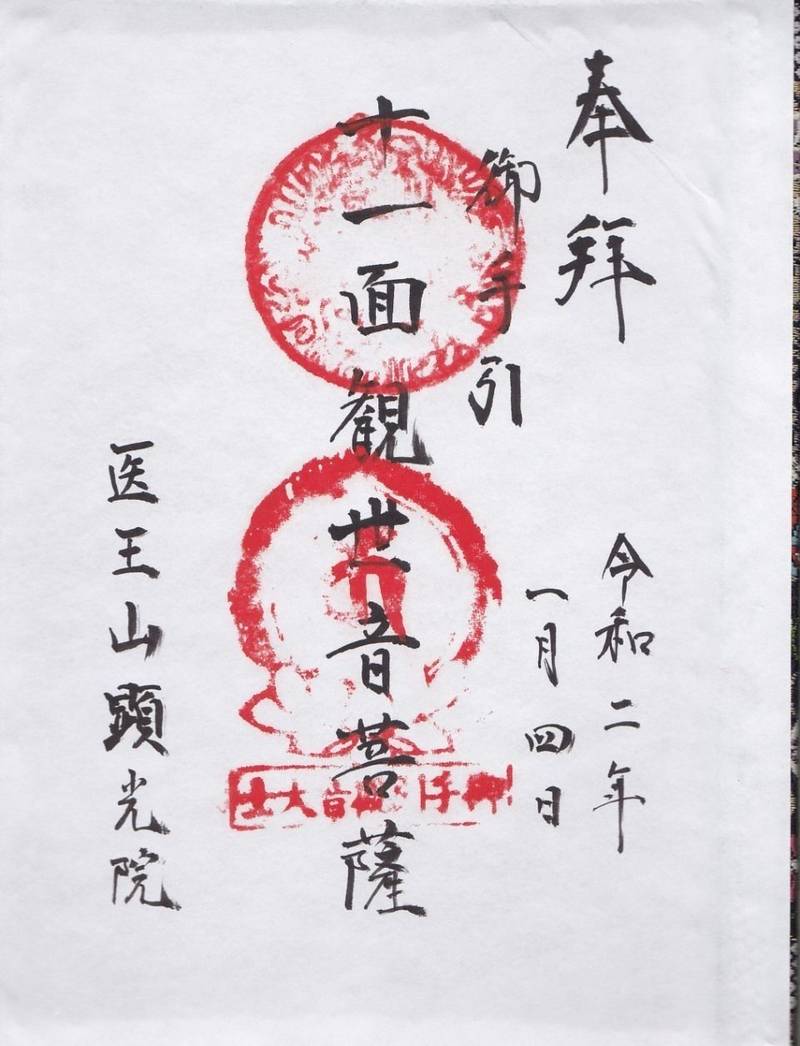 奉拝
令和二年
一月四日
御手引
十一面観世音菩薩
医王山顕光院